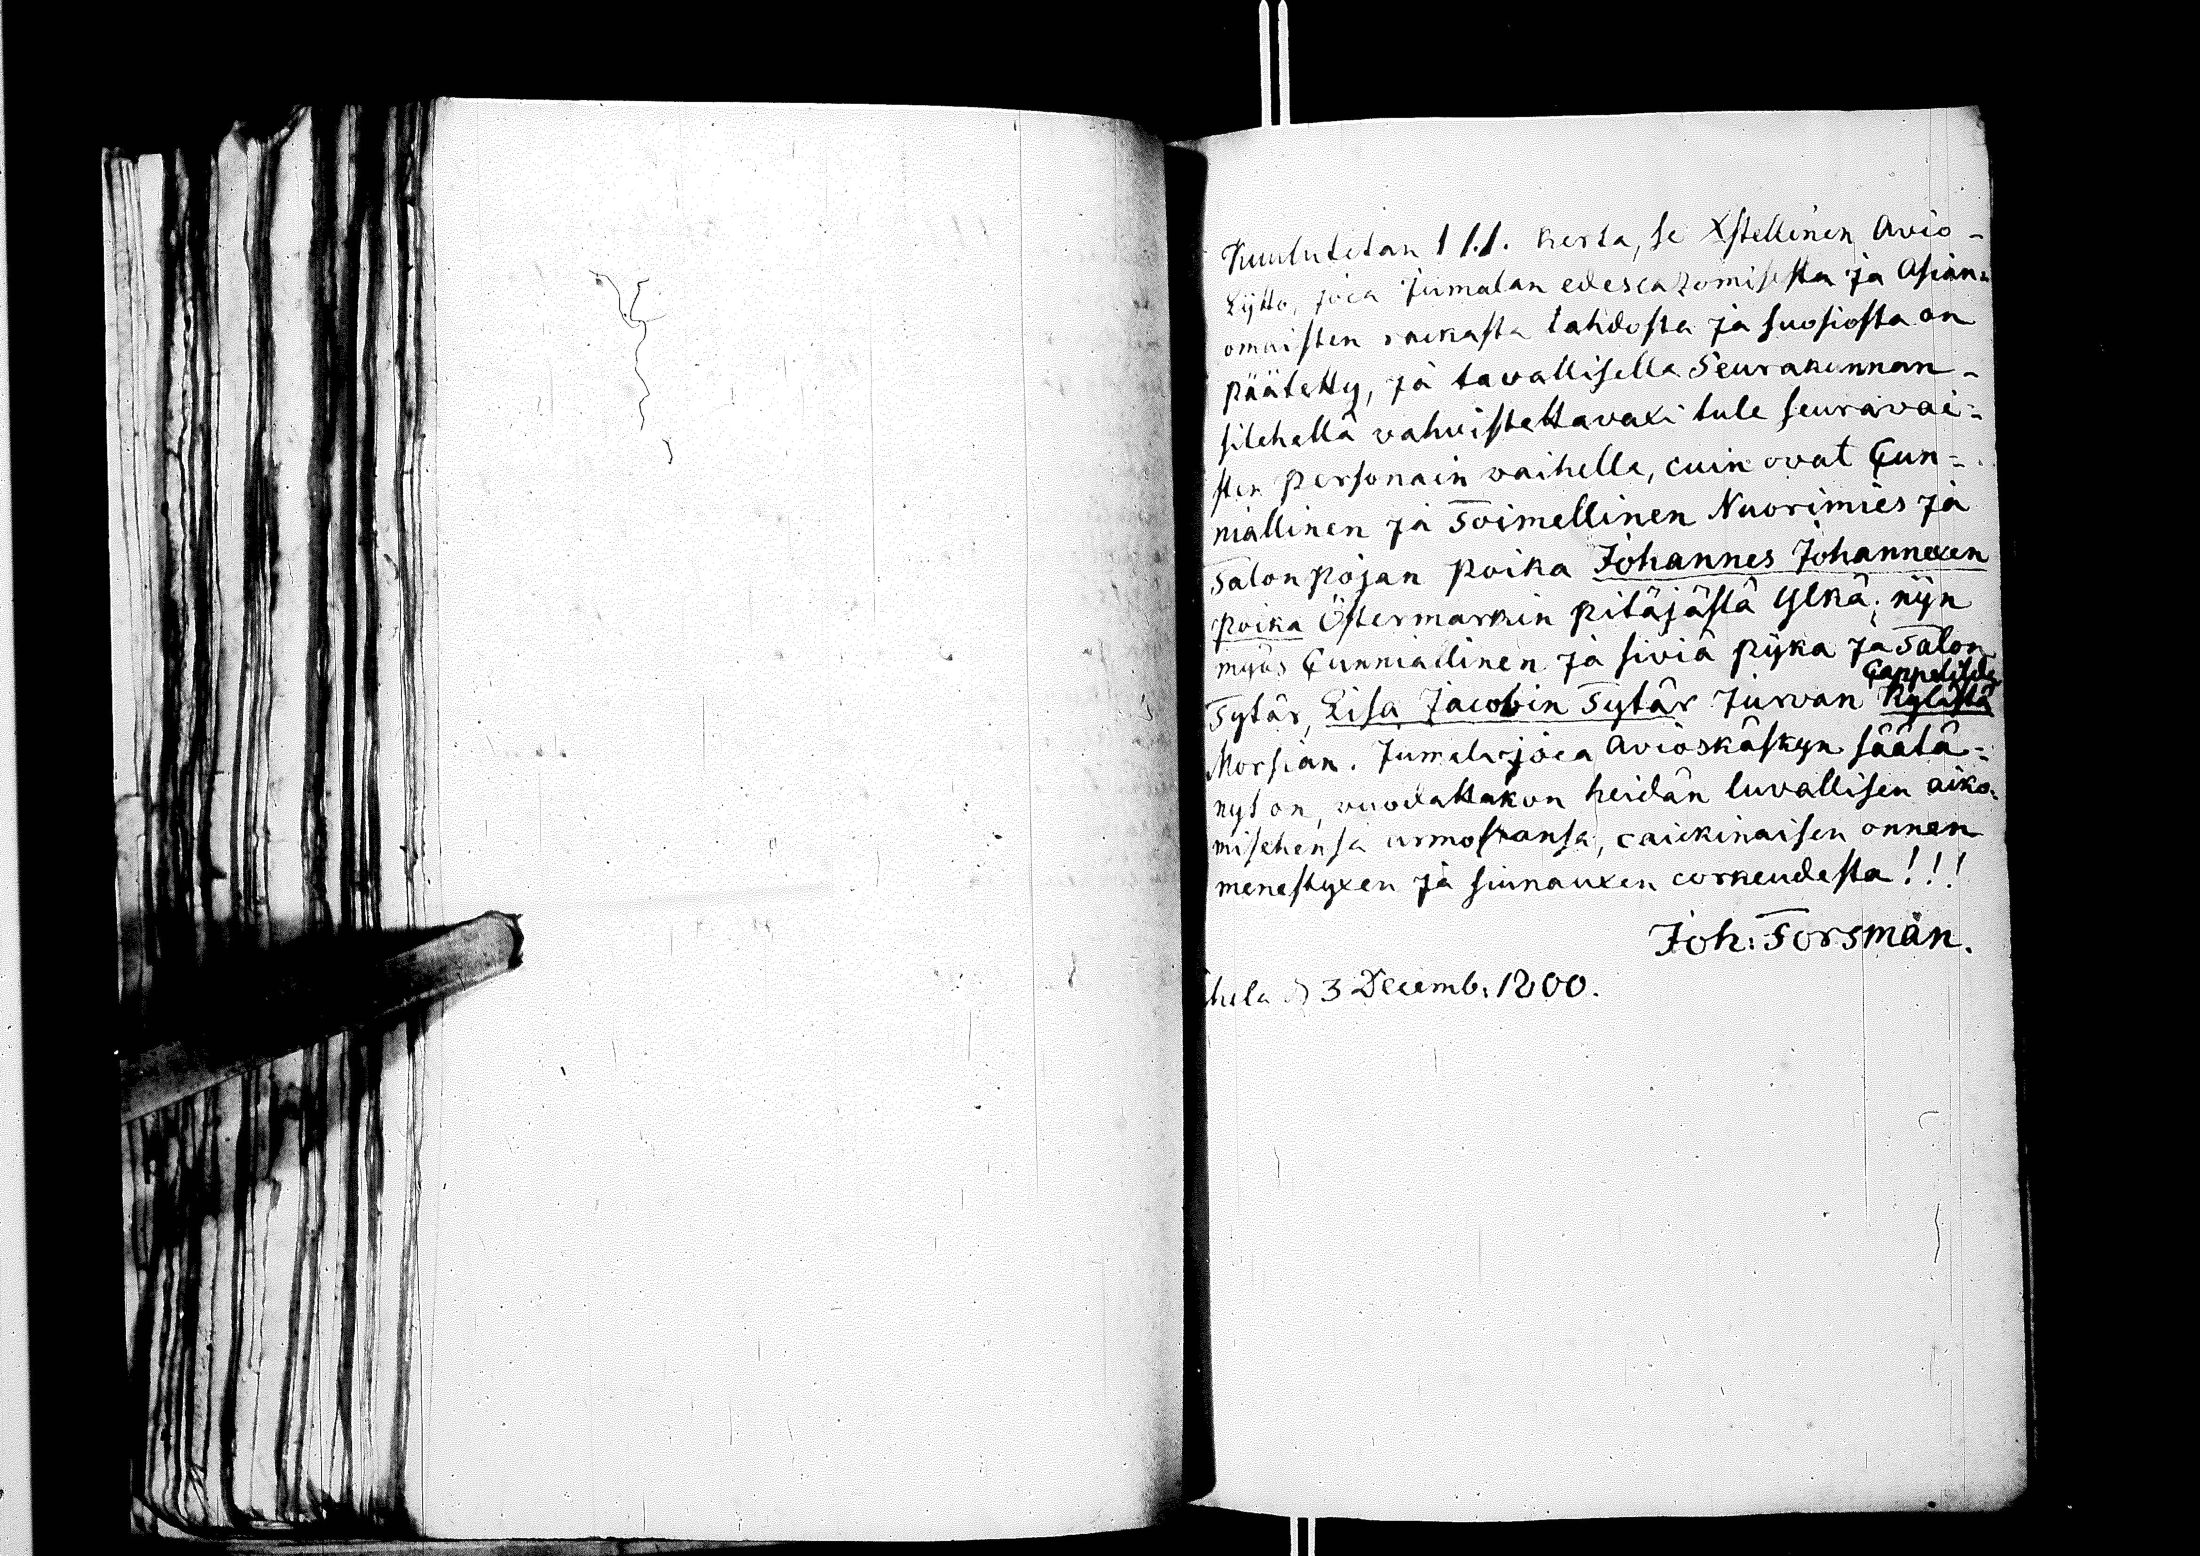 Kuulutetan 1 1.1. kerta, se Xstellinen Avio-
Lijtto, joca Jumalan edescazomisesta ja Asian-
omaisten raekasta tahdosta ja suosiosta on
päätetty, ja tavallisella Seurakunnan-
silehellä vahvistettavaxi tule seuravai=
sten personain vaihella, cuin ovat Cun=
niallinen ja Toimellinen Nuorimies ja
Talonpojan poika Johannes Johannexen
poika Östermarkin pitäjästä Ylkä; nijn
myös Cunniallinen ja siviä pijka ja Talon
Cappelista
Tytär, Lisa Jacobin Tytär Jurvan Kylästä
Morsian. Jumala joca Avioskäskyn säätä=
nyt on, vuodattakon heidän luvallisen aiko-
misehensa armostansa, caickinaisen onnen
menestyxen ja siunauxen corkeudesta!!!
Joh: Forsman.
3 Decemb: 1800.